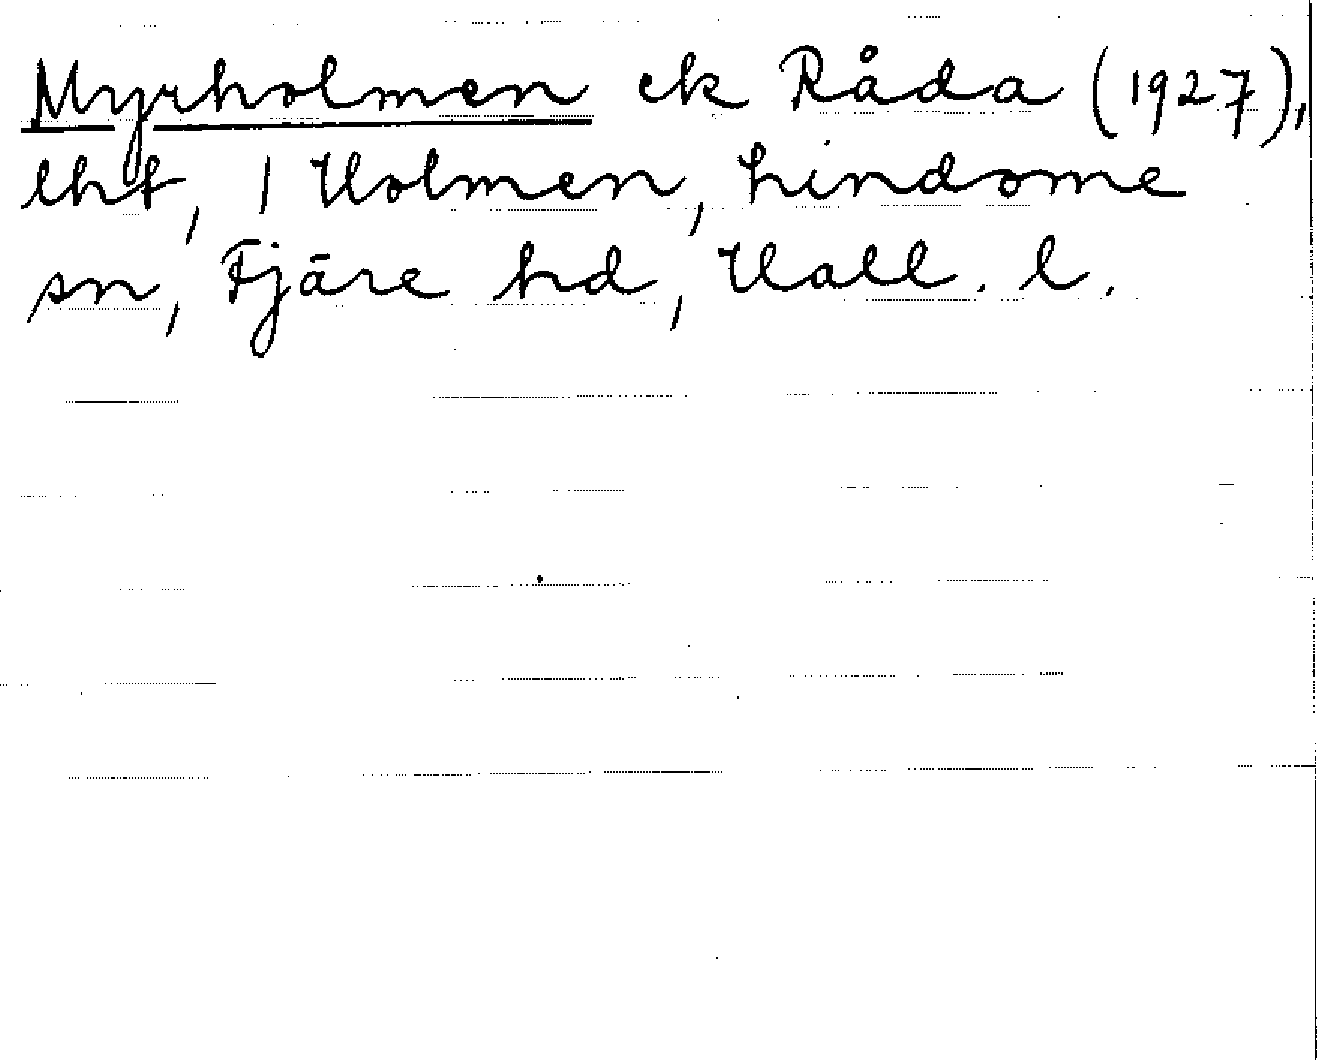 Myrholmen ek Råda (1927),
lht, 1 Holmen, Lindome
sn, Fjäre hd, Hall. l.